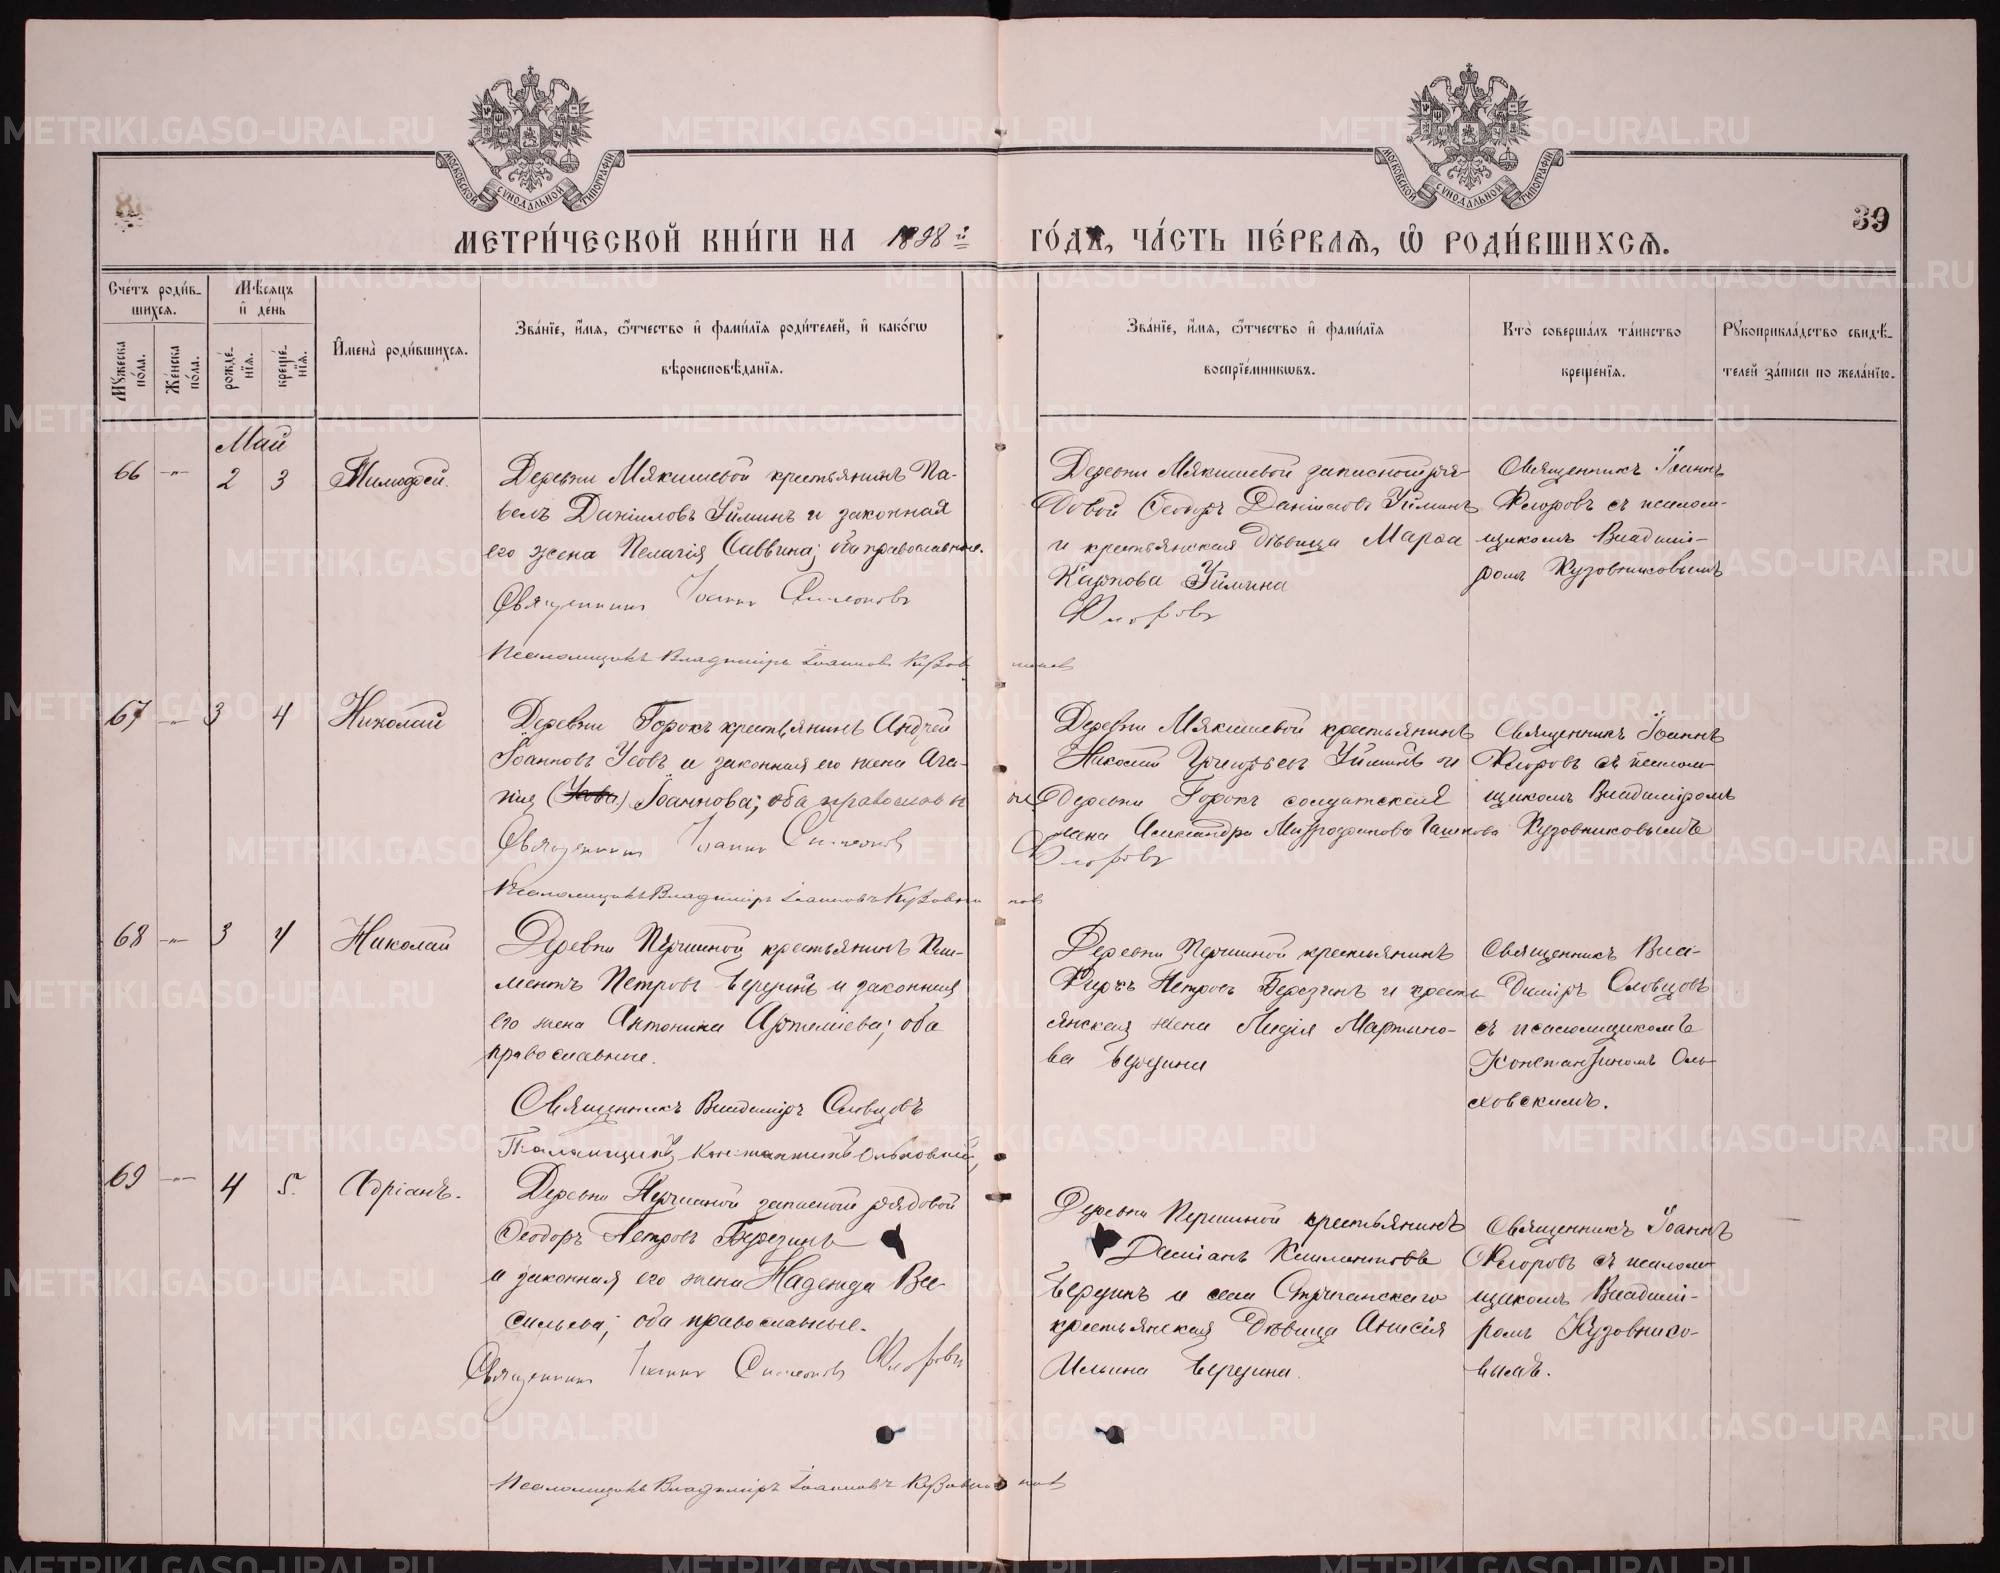 МЕТРИ́ЧЕСКОЙ КНИ́ГИ НА 1898й ГО́ДЪ, ЧА́СТЬ ПЕ́РВАѦ, Ѽ РОДИ́ВШИХСѦ.
39
МОСКОВСКОЙ СѴНОДАЛЬНОЙ ТИПОГРАФІИ
МОСКОВСКОЙ СѴНОДАЛЬНОЙ ТИПОГРАФІИ
Сче́тъ роди́в-
шихсѧ.
Мѣ́сѧцъ
и҆ де́нь
Мꙋ́жеска
по́ла.
Же́нска
по́ла.
рожде́-
нїѧ.
креще́-
нїѧ.
И҆мена̀ роди́вшихсѧ.
Зва́нїе, и҆́мѧ, ѻ҆́тчество и҆ фами́лїѧ роди́телей, и҆ како́гѡ
вѣроисповѣ́данїѧ.
Зва́нїе, и҆́мѧ, ѻ҆́тчество и҆ фами́лїѧ
воспрїе́мникѡвъ.
Кто̀ соверша́лъ та́инство
креще́нїѧ.
Рꙋкоприкла́дство свидѣ́-
телей за́писи по жела́нїю.
Май
66 -"- 2 3 Тимофей.
Деревни Мякишевой крестьянинъ Па-
велъ Даніиловъ Уйминъ и законная
его жена Пелагія Саввина; оба православные.
Священникъ Іоаннъ Симеоновъ Флоровъ
Псаломщикъ Владиміръ Іоанновъ Кузовниковъ
Деревни Мякишевой запасной ря-
довой Ѳеодоръ Даніиловъ Уйминъ
и крестьянская дѣвица Марѳа
Карпова Уймина
Священникъ Іоаннъ
Флоровъ съ псалом-
щикомъ Владимі-
ромъ Кузовниковымъ
67 -"- 3 4 Николай
Деревни Горокъ крестьянинъ Андрей
Іоанновъ Усовъ и законная его жена Ага-
пія Іоаннова; оба православные
Священникъ Іоаннъ Симеоновъ Флоровъ
Псаломщикъ Владиміръ Іоанновъ Кузовниковъ
Деревни Мякишевой крестьянинъ
Николай Григорьевъ Уйминъ и
деревни Горокъ солдатская
жена Александра Митрофанова
Священникъ Іоаннъ
Флоровъ съ псалом-
щикомъ Владиміромъ
Кузовниковымъ
68 -"- 3 4 Николай
Деревни Першиной крестьянинъ Кли-
ментъ Петровъ Березинъ и законная
его жена Антонина Артеміева; оба
православные.
Священникъ Владиміръ Словцовъ
Псаломщикъ Константинъ Ольховскій
Деревни Першиной крестьянинъ
Фирсъ Петровъ Березинъ и кресть-
янская жена Лидія Мартино-
ва Березина
Священникъ Вла-
диміръ Словцовъ
съ псаломщикомъ
Константиномъ Оль-
ховскимъ.
69 -"- 4 5. Адріанъ.
Деревни Першиной запасной рядовой
Ѳеодоръ Петровъ Березинъ
и законная его жена Надежда Ва-
сильева; оба православные.
Священникъ Іоаннъ Симеоновъ Флоровъ
Псаломщикъ Владиміръ Іоанновъ Кузовниковъ
Деревни Першиной крестьянинъ
Даміанъ Климентовъ
Березинъ и села Стриганскаго
крестьянская дѣвица Анисія
Ильина Березина.
Священникъ Іоаннъ
Флоровъ съ псалом-
щикомъ Владимі-
ромъ Кузовнико-
вымъ.
METRIKI.GASO-URAL.RU